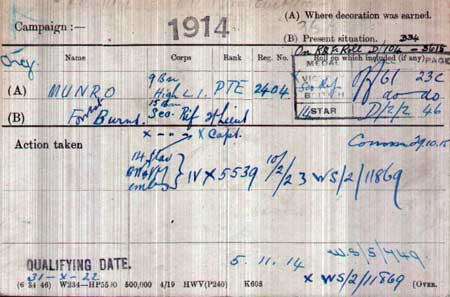 Campaign :— 1914 (A) Where decoration was earned.
(B) Present situation. 334
On K.R. & Roll D/104
MEDAL Roll on which included PAGE
Name Corps Rank Reg. No.
9 Bn
(A) MUNRO High L.I. PTE 2404 VICTORY O/1/61 23C
BRITISH do do.
15 Bn
(B) Burns. Sea. Rif 2/Lieut 14 STAR D/2/2 46
x -- x Capt.
Action taken Commn 29.10.15
IV X 5539 10/2/23 WS/2/11869
emblems
WS/5/449
QUALIFYING DATE. 5.11.14
31-X-22 x WS/2/11869
(6 34 46) W234—HP5590 500,000 4/19 HWV(P240) K608 (OVER.